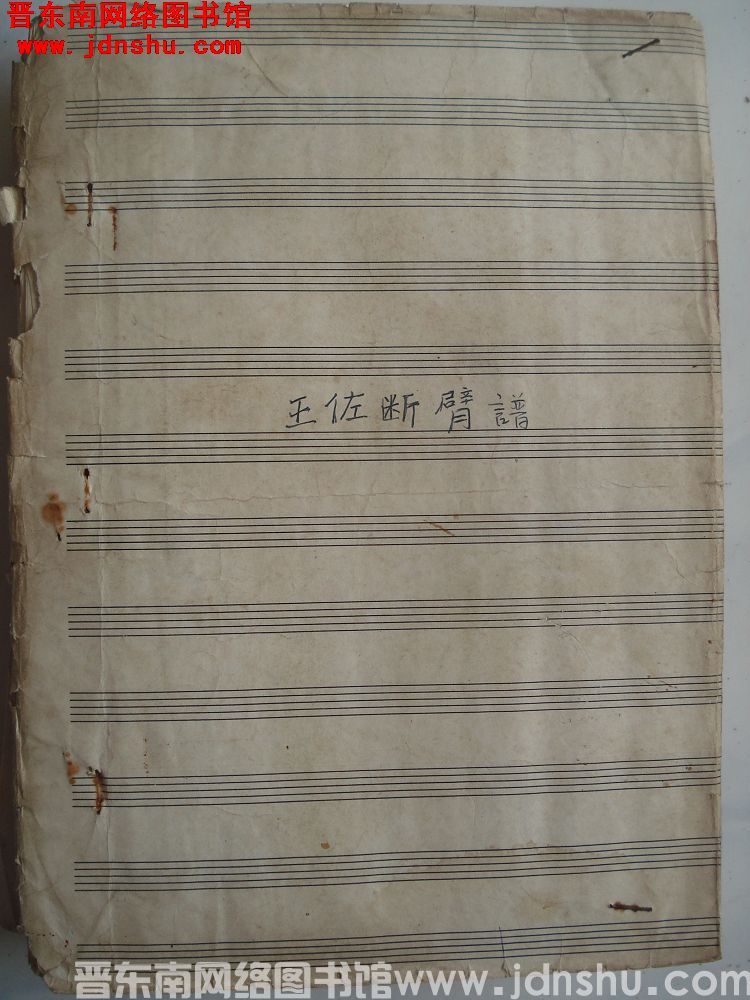 晋东南网络图书馆
www.jdnshu.com
王佐断臂譜
晋东南网络图书馆www.jdnshu.com